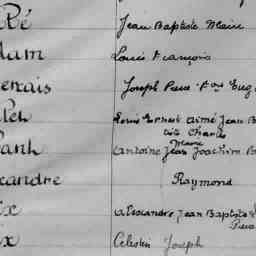 Ré Jean Baptiste Marie
dam Louis François
ervais Joseph Pierre
Louis Ernest Aimé Jean B
dit Charles
Marie
anh Antoine Jean Joachim B
xandre Raymond
ix Alexandre Jean Baptiste
Pierre
ix Célestin Joseph